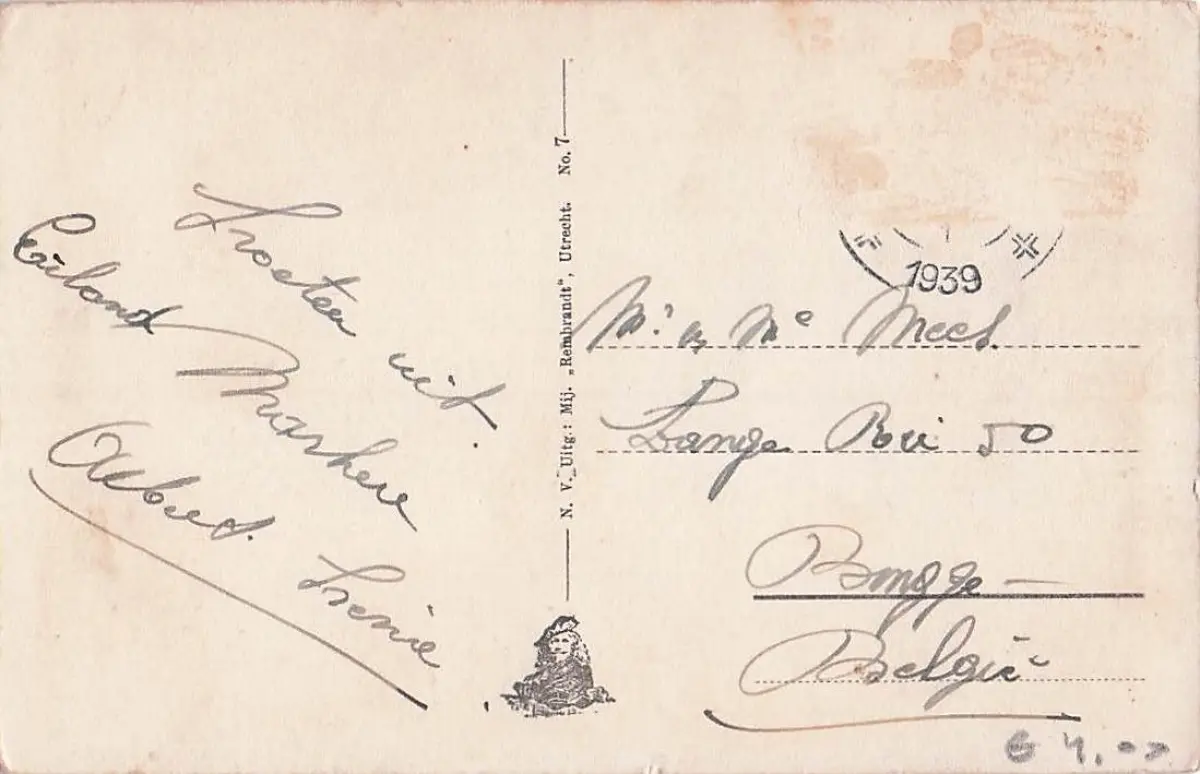 Groeten uit
Eiland Marken
Albert. Irenie
N. V. Uitg.: Mij. „Rembrandt“, Utrecht. No. 7
1939
Mr en Me Mees
Lange Rei 50
Brugge —
België
€ 4,00